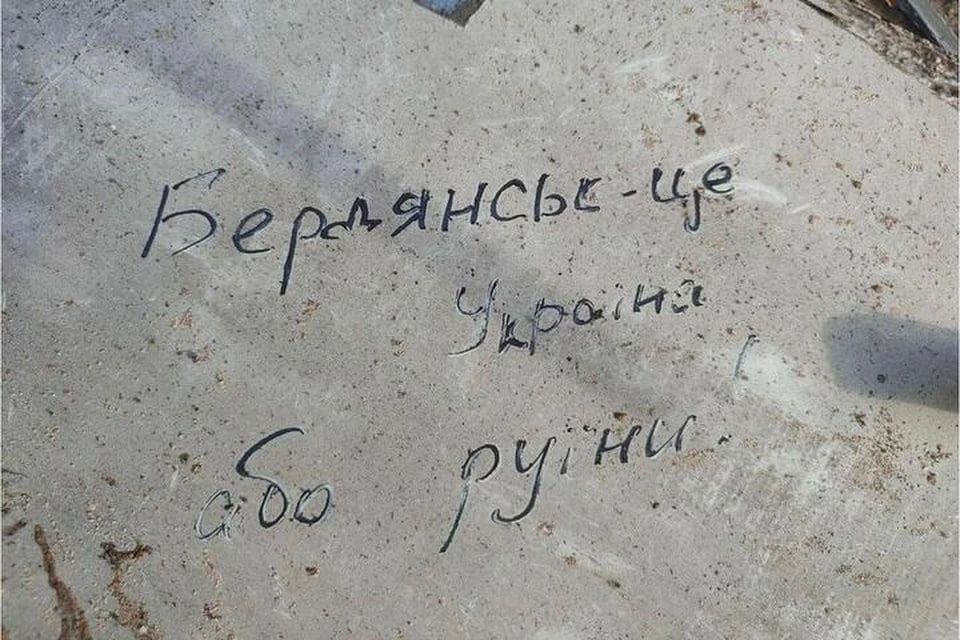 Бердянськ - це
Україна
або руїни.